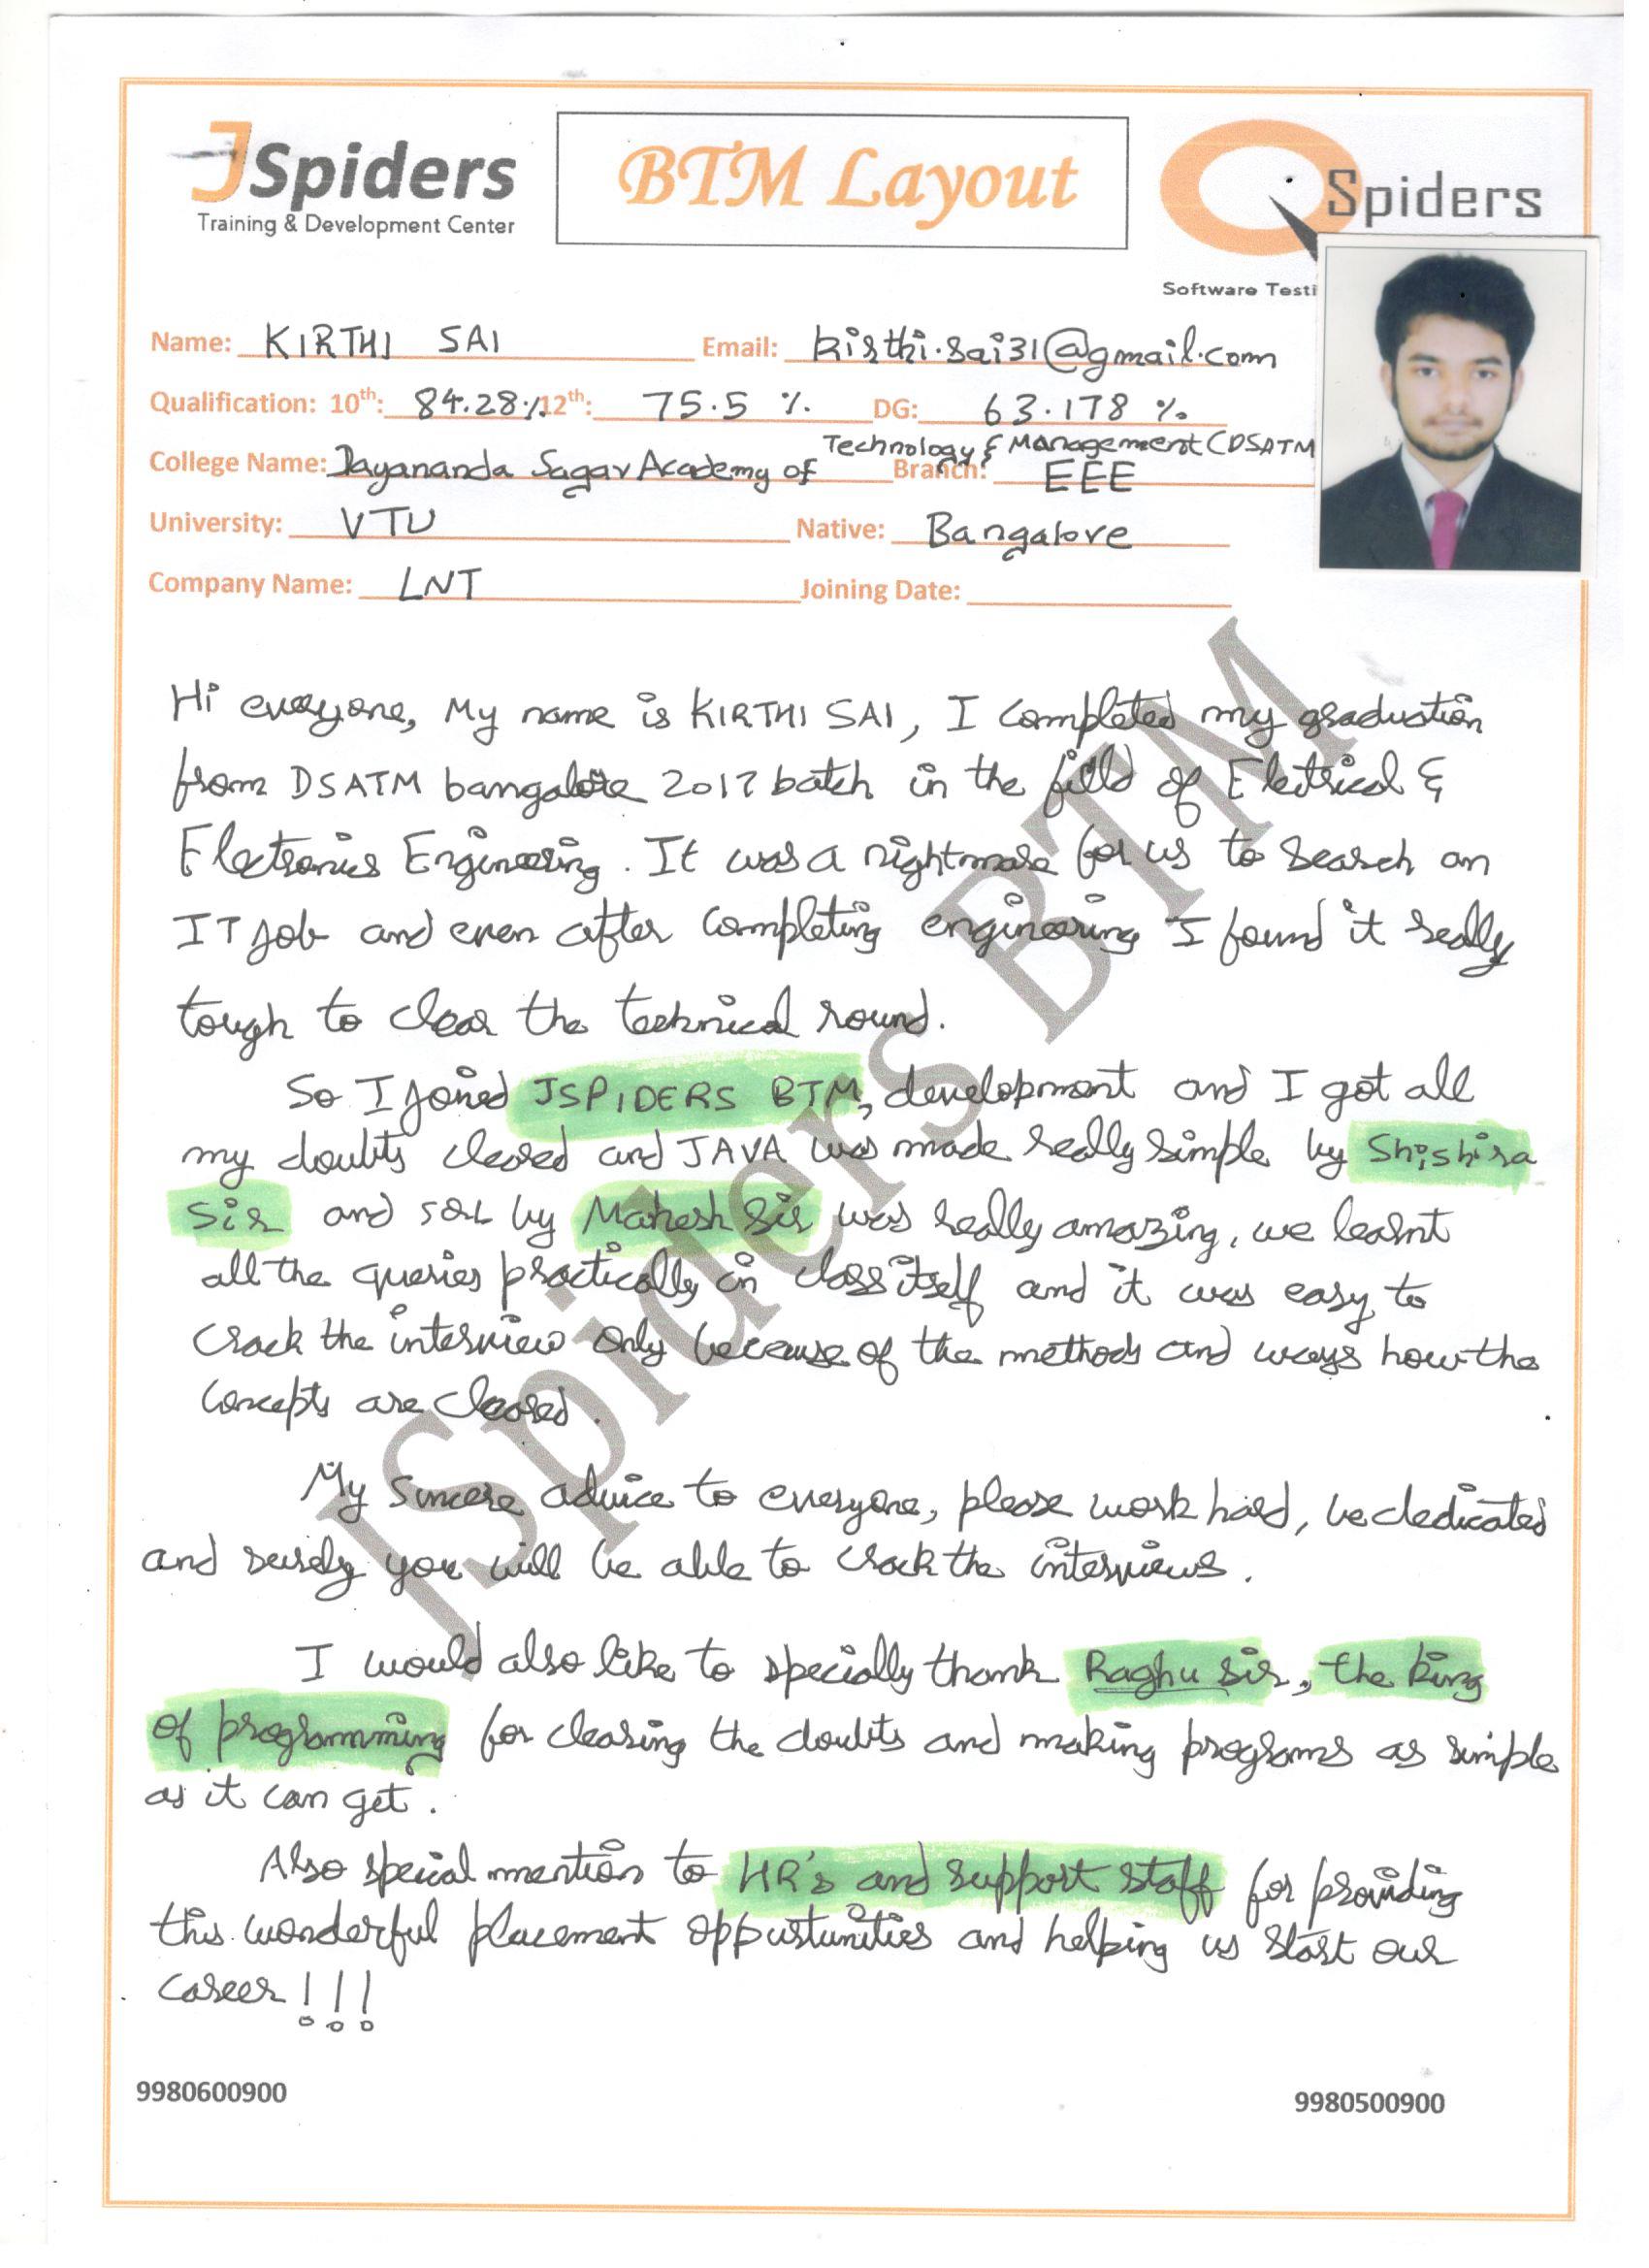 JSpiders
Training & Development Center
BTM Layout
Spiders
Software Testi
Name: KIRTHI SAI Email: kirthi.sai31@gmail.com
Qualification: 10th: 84.28% 12th: 75.5 % DG: 63.178 %
College Name: Dayananda Sagar Academy of Technology & Management (DSATM Branch: EEE
University: VTU Native: Bangalore
Company Name: LNT Joining Date:
Hi everyone, My name is KIRTHI SAI, I completed my graduation
from DSATM bangalore 2017 batch in the field of Eletrical &
Electronics Engineering. It was a nightmare for us to search an
IT job and even after completing engineering I found it really
tough to clear the technical round.
So I joined JSPIDERS BTM, development and I got all
my doubts cleared and JAVA was made really simple by Shishira
Sir and SQL by Mahesh Sir was really amazing, we learnt
all the queries practically in class itself and it was easy to
crack the interview only because of the methods and ways how the
concepts are cleared.
My sincere advice to everyone, please work hard, be dedicated
and surely you will be able to crack the interviews.
I would also like to specially thank Raghu sir, the king
of programming for clearing the doubts and making programs as simple
as it can get.
Also special mention to HR's and support staff for providing
this wonderful placement oppurtunities and helping us start our
career!!!
9980600900 9980500900
JSpiders BTM